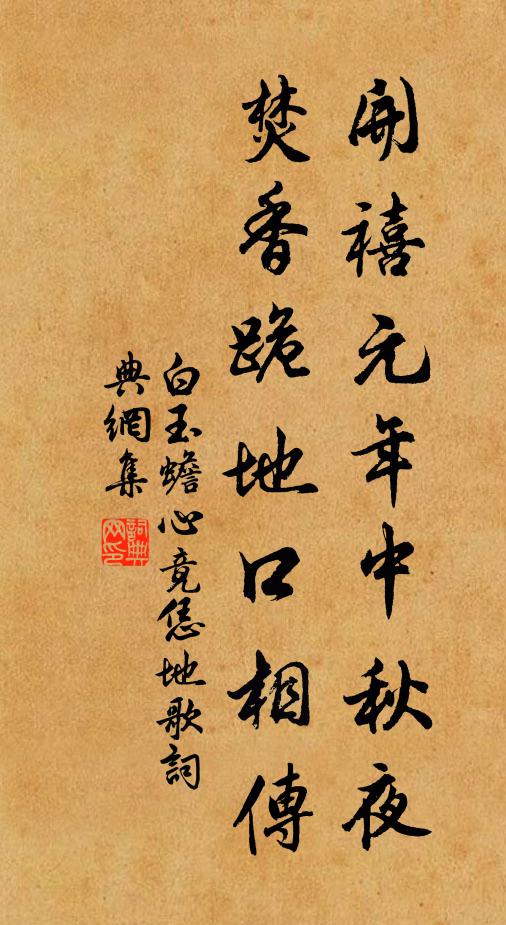 開禧元年中秋夜
焚香跪地口相傳
白玉蟾心竟恁地歌詞
典網集
詞典網印